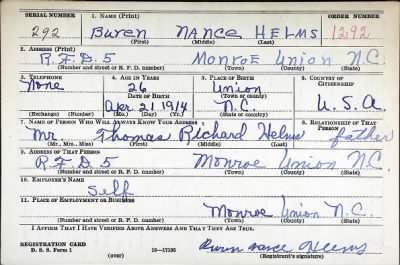 SERIAL NUMBER 1. NAME (Print) ORDER NUMBER
292 Buren NANCE HELMS 1292
(First) (Middle) (Last)
2. ADDRESS (Print)
R.F.D. 5 MONROE UNION N.C.
(Number and street or R. F. D. number) (Town) (County) (State)
3. TELEPHONE 4. AGE IN YEARS 5. PLACE OF BIRTH 6. COUNTRY OF CITIZENSHIP
None 26 Union
DATE OF BIRTH (Town or county)
Apr. 21 1914 N.C. U.S.A
(Exchange) (No.) (Mo.) (Day) (Yr.) (State or country)
7. NAME OF PERSON WHO WILL ALWAYS KNOW YOUR ADDRESS 8. RELATIONSHIP OF THAT PERSON
Mr. Thomas Richard Helms father
(Mr., Mrs., Miss) (First) (Middle) (Last)
9. ADDRESS OF THAT PERSON
R.F.D. 5 Monroe Union N.C.
(Number and street or R. F. D. number) (Town) (County) (State)
10. EMPLOYER'S NAME
Self
11. PLACE OF EMPLOYMENT OR BUSINESS
Monroe Union N.C.
(Number and street or R. F. D. number) (Town) (County) (State)
I AFFIRM THAT I HAVE VERIFIED ABOVE ANSWERS AND THAT THEY ARE TRUE.
REGISTRATION CARD
D. S. S. Form 1 16—17105 Buren Nance Helms
(over) (Registrant's signature)